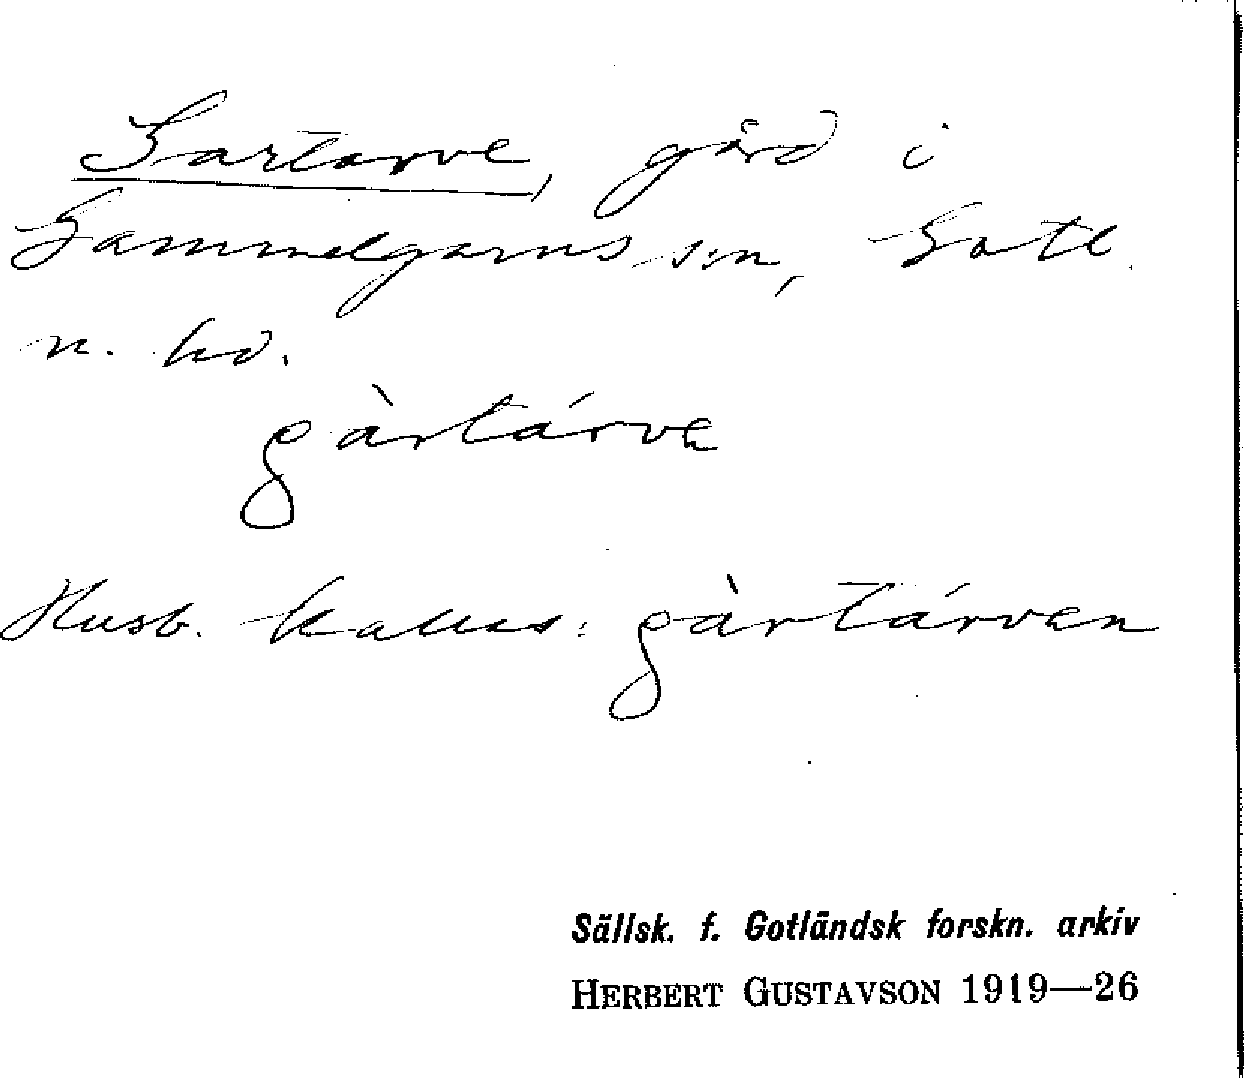 Gartarve, gård i
Gammelgarns sn, Gotl.
n. hd.
gàrtárvɐ
Husb. kallas: gàrtárvɐn
Sällsk. f. Gotländsk forskn. arkiv
HERBERT GUSTAVSON 1919—26